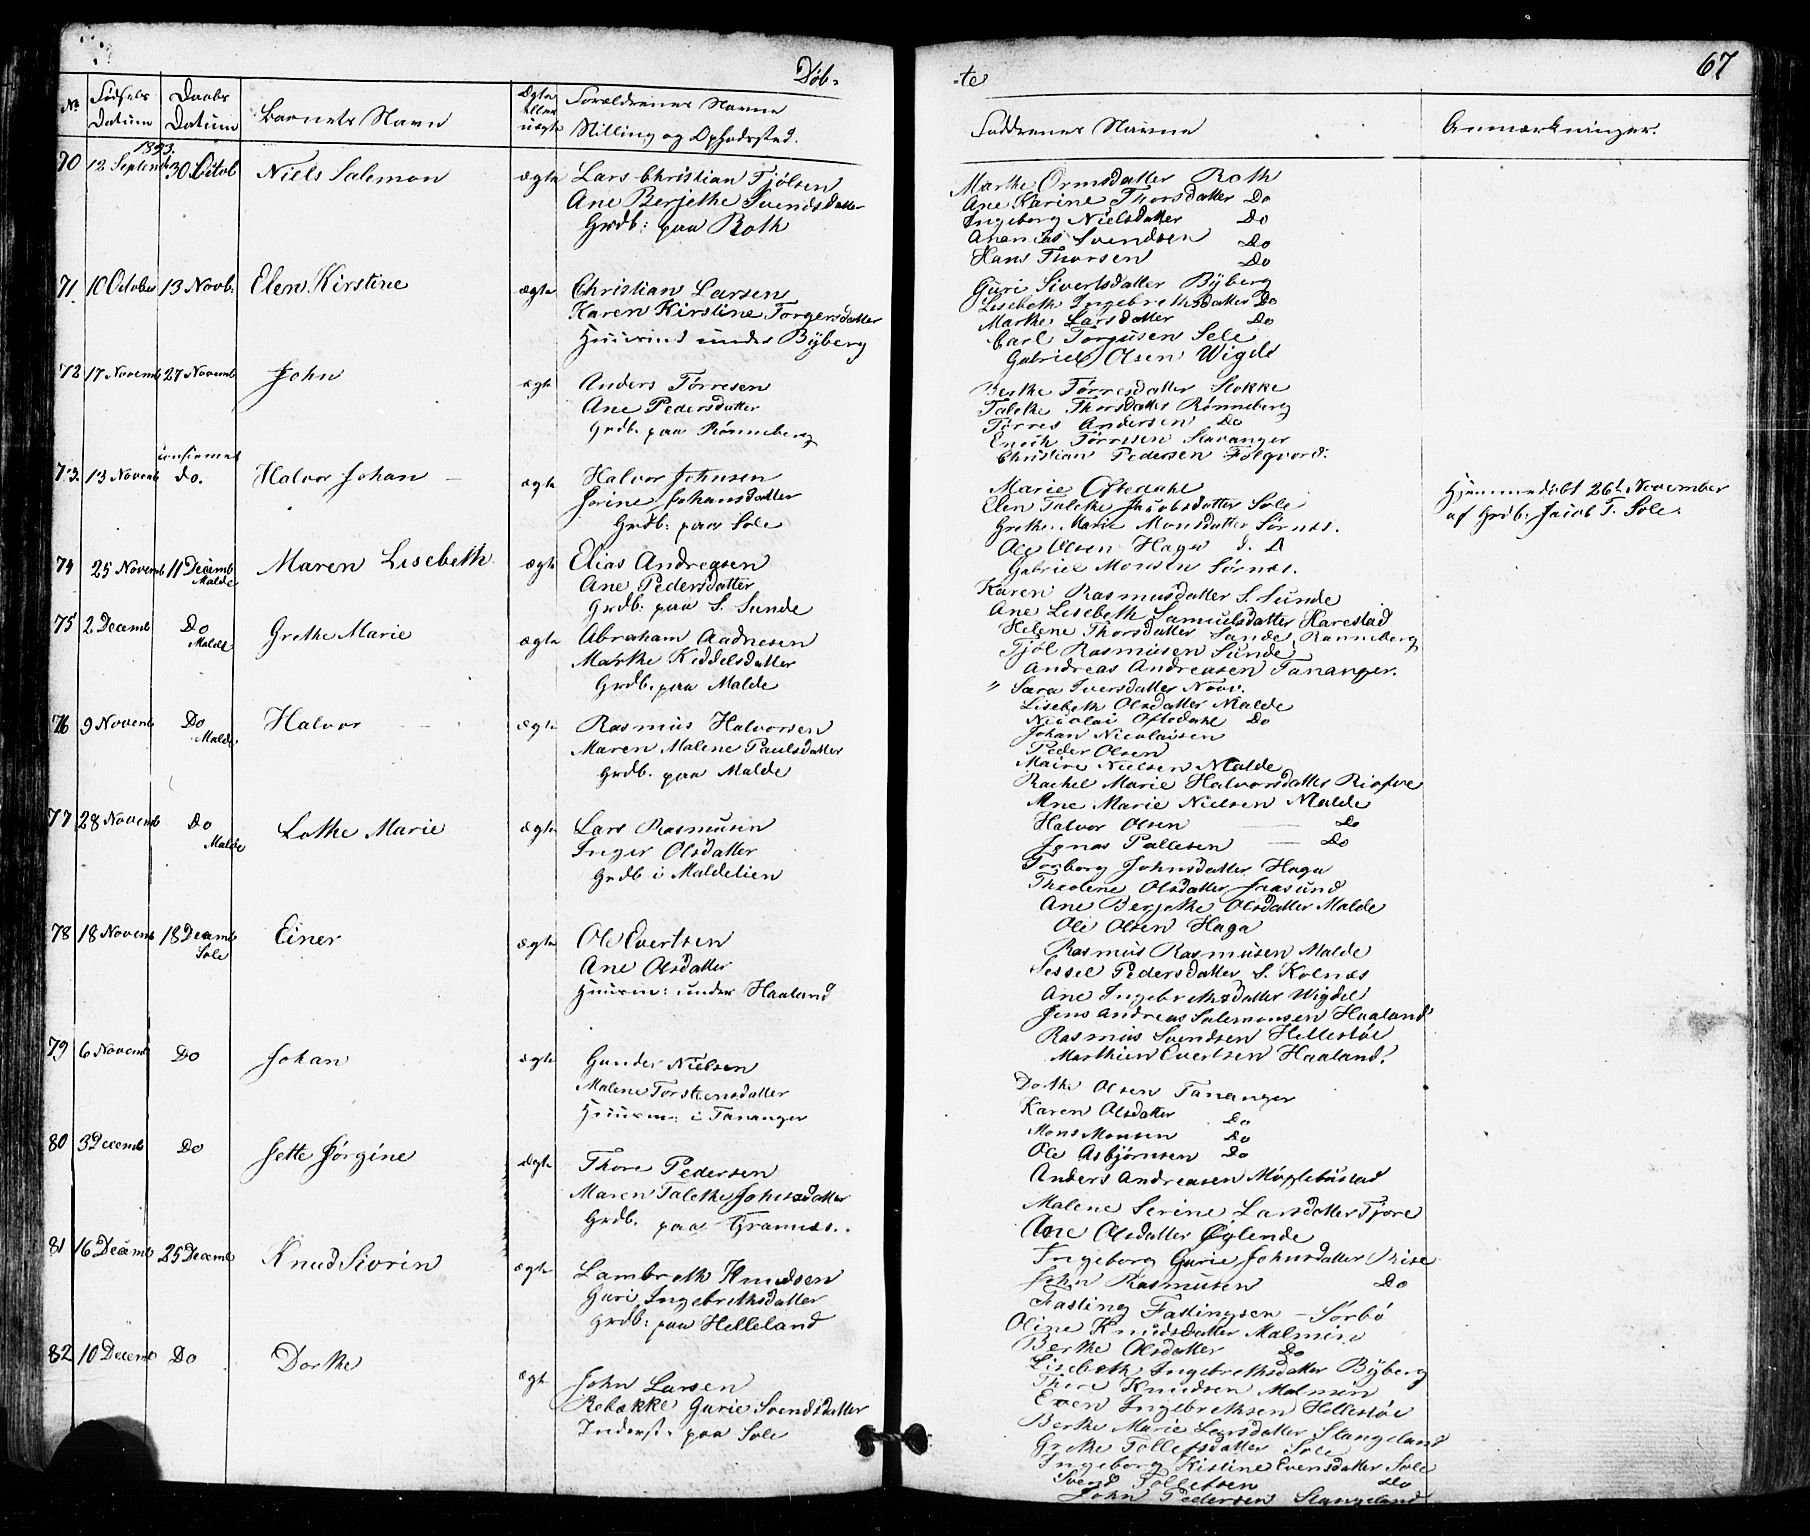 Døb-
-te
67
No
Fødsels Datum
Daabs Datum
Barnets Navn
Ægte eller uægte
Forældrenes Navne
Stilling og Opholdsted.
Faddrenes Navne
Anmærkninger.
1853.
70 12 Septemb 30 Octob Niels Salemon ægte Lars Christian Tjølsen
Ane Berjethe Svendsdatter
Grdb: paa Roth
Marthe Ormsdatter Roth
Ane Karine Thorsdatter Do
Ingeborg Nielsdatter Do
Ananias Svendsen Do
Hans Thorsen Do
71 10 October 13 Novb. Elen Kirstine ægte Christian Larsen
Karen Kirstine Torgersdatter
Huusmd under Byberg
Guri Sivertsdatter Byberg
Lisebeth Ingebrethsdatter Do
Marthe Larsdatter Do
Carl Torgusen Sele
Gabriel Olsen Wigdel
72 17 Novemb 27 Novemb John ægte Anders Tørresen
Ane Pedersdatter
Grdb. paa Rønneberg
Berthe Tørresdatter Stokke
Talethe Thorsdatter Rønneberg
Tørres Andersen Do
Enoch Tørresen Stavanger
Christian Pedersen
73. 13 Novemb confirmet do. Halvor Johan ægte Halvor Johnsen
Jorine Johansdatter
Grdb: paa Sole
Marie Oftedahl
Elen Talethe Jacobsdatter Sole
Grethe Marie Monsdatter Sørnes.
Ole Olsen Haga
Gabriel Monsen Sørnes.
Hjemmedøbt 26t November
af Grdb. Jacob T. Sole.
74 25 Novemb 11 Decemb Malde Maren Lisebeth ægte Elias Andreasen
Ane Pedersdatter
Grdb: paa S. Sunde
Karen Rasmusdatter S. Sunde
Ane Lisebeth Samuelsdatter Harestad
Helene Thorsdatter Sande, Rønneberg
Tjøl Rasmusen Sunde
Andreas Andreasen Tananger.
75 2 Decemb Do Malde Grethe Marie ægte Abraham Aadnesen
Marthe Kiddelsdatter
Grdb. paa Malde
" Sara Iversdatter
Lisebeth Olsdatter Malde
Nicolai Oftedahl Do
Johan Nicolaisen
Peder Olsen
76 9 Novemb Do Malde. Halvor ægte Rasmus Halvorsen
Maren Malene Paulsdatter
Grdb. paa Malde
Maire Nielsen Malde
Rachel Marie Halvorsdatter
Ane Marie Nielsen Malde
Halvor Olsen Do
Jonas Pallesen Do
77 28 Novemb Do Malde Lothe Marie ægte Lars Rasmusen
Inger Olsdatter
Grdb i Maldelien
Torborg Johnsdatter Haga
Theoline Olsdatter Jaasund
Ane Berjethe Olsdatter Malde
Ole Olsen Haga
Rasmus Rasmusen Malde
78 18 Novemb 18 Decemb Sole Einer ægte Ole Evertsen
Ane Olsdatter
Huusm: under Haaland
Sessel Pedersdatter S. Kolnæs
Ane Ingebrethsdatter Wigdel
Jens Andreas Salemonsen Haaland
Rasmus Svendsen Hellestøe
Matthien Evertsen Haaland.
79 6 Novemb Do Johan ægte Gunder Nielsen
Malene Torstensdatter
Huusm: i Tananger
Dorthe Olsen Tananger
Karen Olsdatter Do
Mons Monsen Do
Ole Asbjørnsen Do
Anders Andreasen
80 3 Decemb Do Jette Jørgine ægte Thore Pedersen
Maren Talethe Johnsdatter
Grdb. paa Grannes.
Malene Serine Larsdatter Tjore
Ane Olsdatter Øglende
Ingeborg Gurie Johnsdatter Risa
John Rasmusen Do
Fasting Fastingsen – Sørbø
81 16 Decemb 25 Decemb Knud Sivrin ægte Lambreth Knudsen
Guri Ingebrethsdatter
Grdb: paa Helleland
Oline Knudsdatter Malmin
Berthe Olsdatter Do
Lisebeth Ingebrethsdatter Byberg
Thore Knudsen Malmin
Even Ingebrethsen Hellestøe
82 10 Decemb Do Dorthe ægte John Larsen
Rebække Gurie Svendsdatter
Inderst. paa Sole
Berthe Marie Larsdatter Stangeland
Grethe Tollefsdatter Sole
Ingeborg Kistine Evensdatter Sole
Svend Tollefsen Do
John Pedersen Stangeland